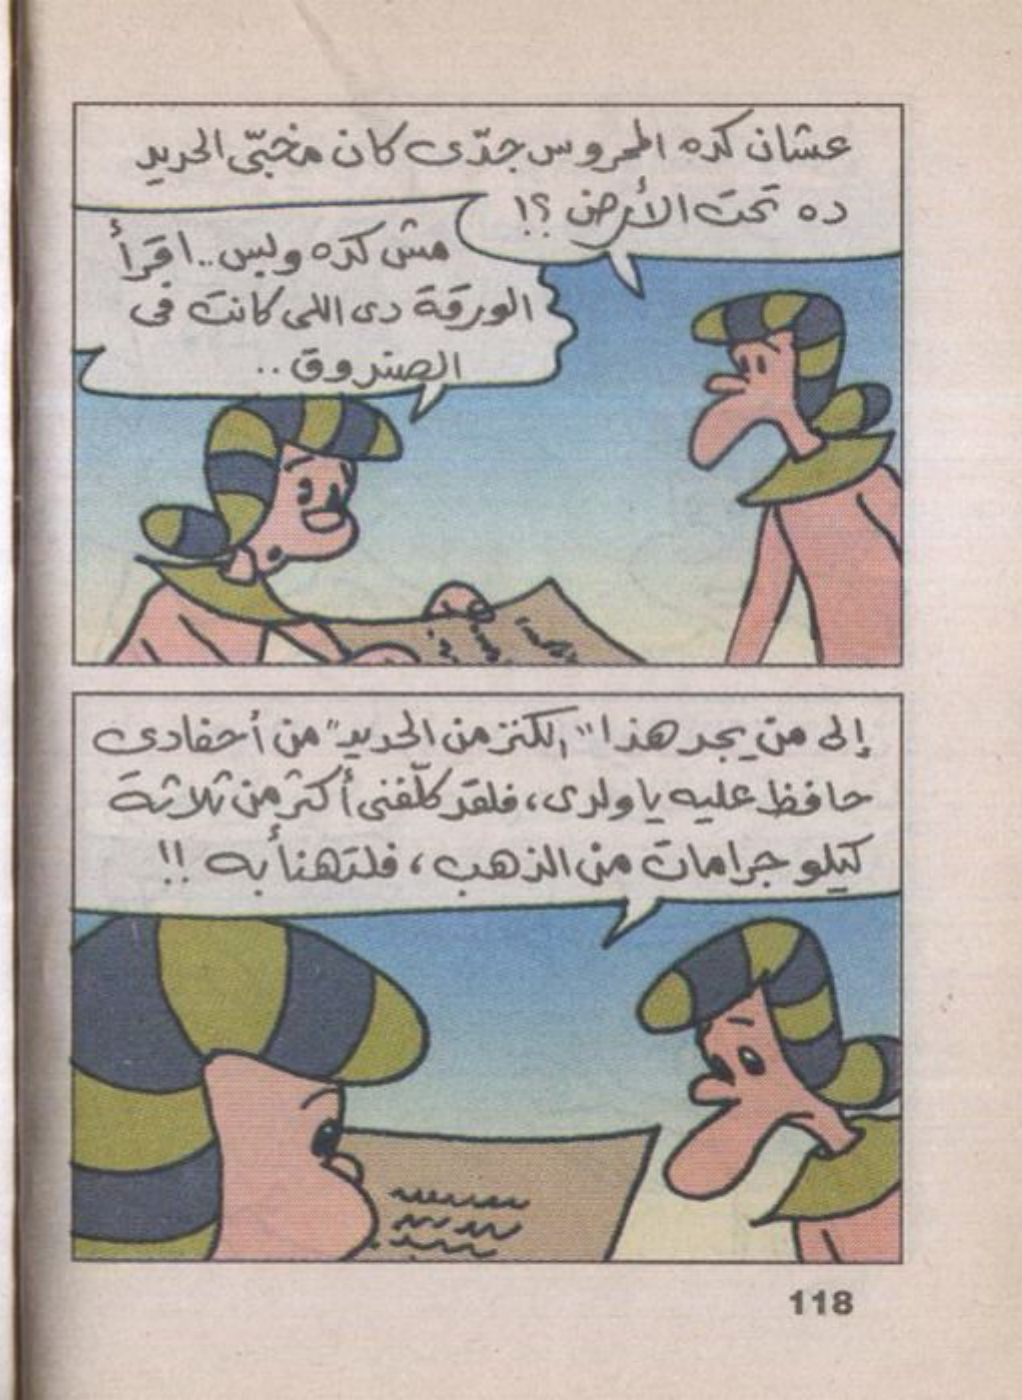 عشان كده المحروس جدّى كان مخبّى الحديد
ده تحت الأرض ؟!
مش كده وبس..اقرأ
الورقة دى اللى كانت فى
الصندوق ..
إلى من يجد هذا "الكنز من الحديد" من أحفادى
حافظ عليه يا ولدى، فلقد كلّفنى أكثر من ثلاثة
كيلو جرامات من الذهب، فلتهنأ به !!
118